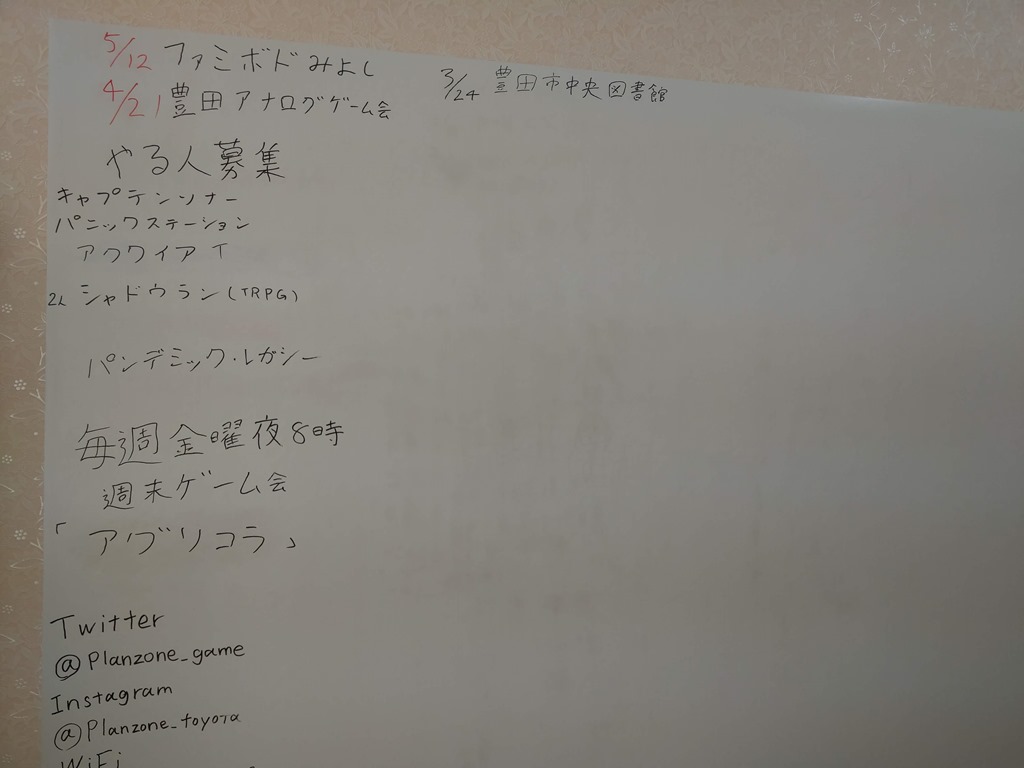 5/12 ファミボドみよし
4/21 豊田アナログゲーム会
3/24 豊田市中央図書館
やる人募集
キャプテンソナー
パニックステーション
アクワイア T
2人 シャドウラン(TRPG)
パンデミック・レガシー
毎週金曜夜8時
週末ゲーム会
「アグリコラ」
Twitter
@Planzone_game
Instagram
@Planzone_toyota
WiFi